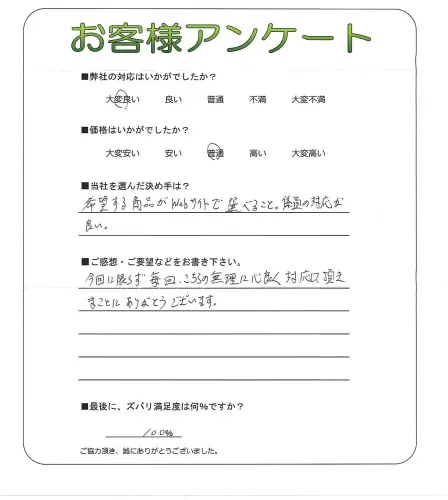 お客様アンケート
■弊社の対応はいかがでしたか？
大変良い 良い 普通 不満 大変不満
■価格はいかがでしたか？
大変安い 安い 普通 高い 大変高い
■当社を選んだ決め手は？
希望する商品がWebサイトで選べること。係員の対応が
良い。
■ご感想・ご要望などをお書き下さい。
今回に限らず毎回、こちらの無理に心良く対応して頂き
まことにありがとうございます。
■最後に、ズバリ満足度は何％ですか？
100%
ご協力頂き、誠にありがとうございました。